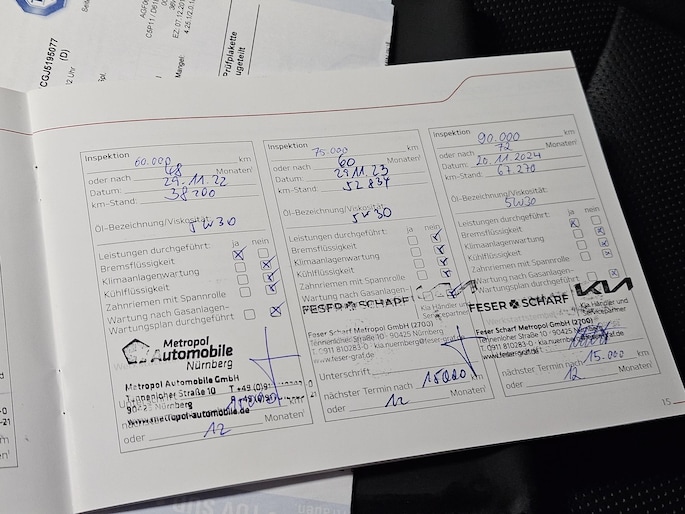 CGJ5195077
(D)
Prüfplakette
Mängel:
Inspektion 60.000 km
oder nach 48 Monaten
Datum: 29.11.22
km-Stand: 38200
Öl-Bezeichnung/Viskosität:
5W30
Leistungen durchgeführt: ja nein
Bremsflüssigkeit
Klimaanlagenwartung
Kühlflüssigkeit
Zahnriemen mit Spannrolle
Wartung nach Gasanlagen-
Wartungsplan durchgeführt
Metropol
Automobile
Nürnberg
Metropol Automobile GmbH
Tennenloher Straße 10
90425 Nürnberg
www.metropol-automobile.de
oder 12 Monaten
Inspektion 75.000 km
oder nach 60 Monaten
Datum: 29.11.23
km-Stand: 52834
Öl-Bezeichnung/Viskosität:
5W30
Leistungen durchgeführt: ja nein
Bremsflüssigkeit
Klimaanlagenwartung
Kühlflüssigkeit
Zahnriemen mit Spannrolle
Wartung nach Gasanlagen-
FESER SCHARF
Kia Händler und
Servicepartner
Feser Scharf Metropol GmbH (2700)
Tennenloher Straße 10 · 90425 Nürnberg
T. 0911 810283-0 · kia.nuernberg@feser-graf.de
www.feser-graf.de
Unterschrift
nächster Termin nach 15000 km
oder 12 Monaten
Inspektion 90.000 km
oder nach 72 Monaten
Datum: 20.11.2024
km-Stand: 67.270
Öl-Bezeichnung/Viskosität:
5W30
Leistungen durchgeführt: ja nein
Bremsflüssigkeit
Klimaanlagenwartung
Kühlflüssigkeit
Zahnriemen mit Spannrolle
Wartung nach Gasanlagen-
FESER SCHARF KIA
Kia Händler und
Servicepartner
Feser Scharf Metropol GmbH (2700)
Tennenloher Straße 10 · 90425 Nürnberg
T. 0911 810283-0 · kia.nuernberg@feser-graf.de
www.feser-graf.de
nächster Termin nach 15.000 km
oder 12 Monaten
15